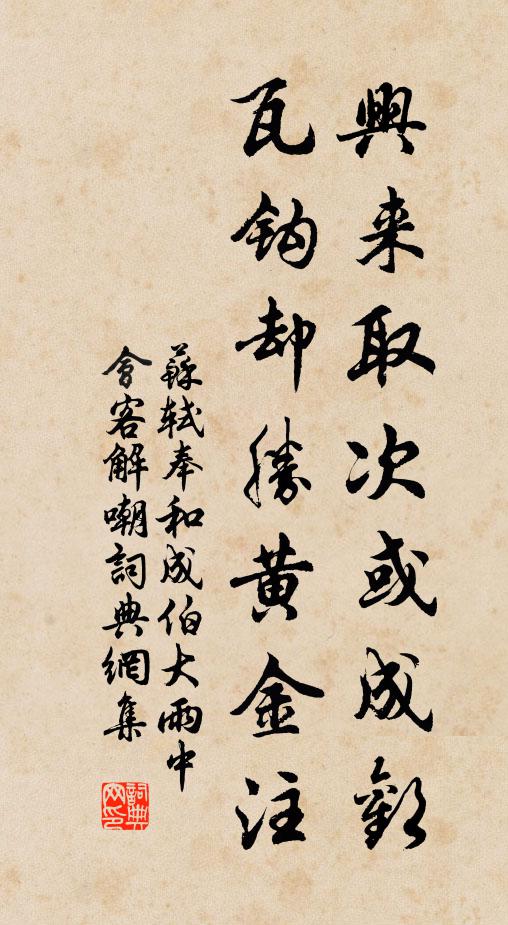 興来取次或成歡
瓦鈎却勝黄金注
蘇軾奉和成伯大雨中
會客解嘲詞典網集
詞典网印